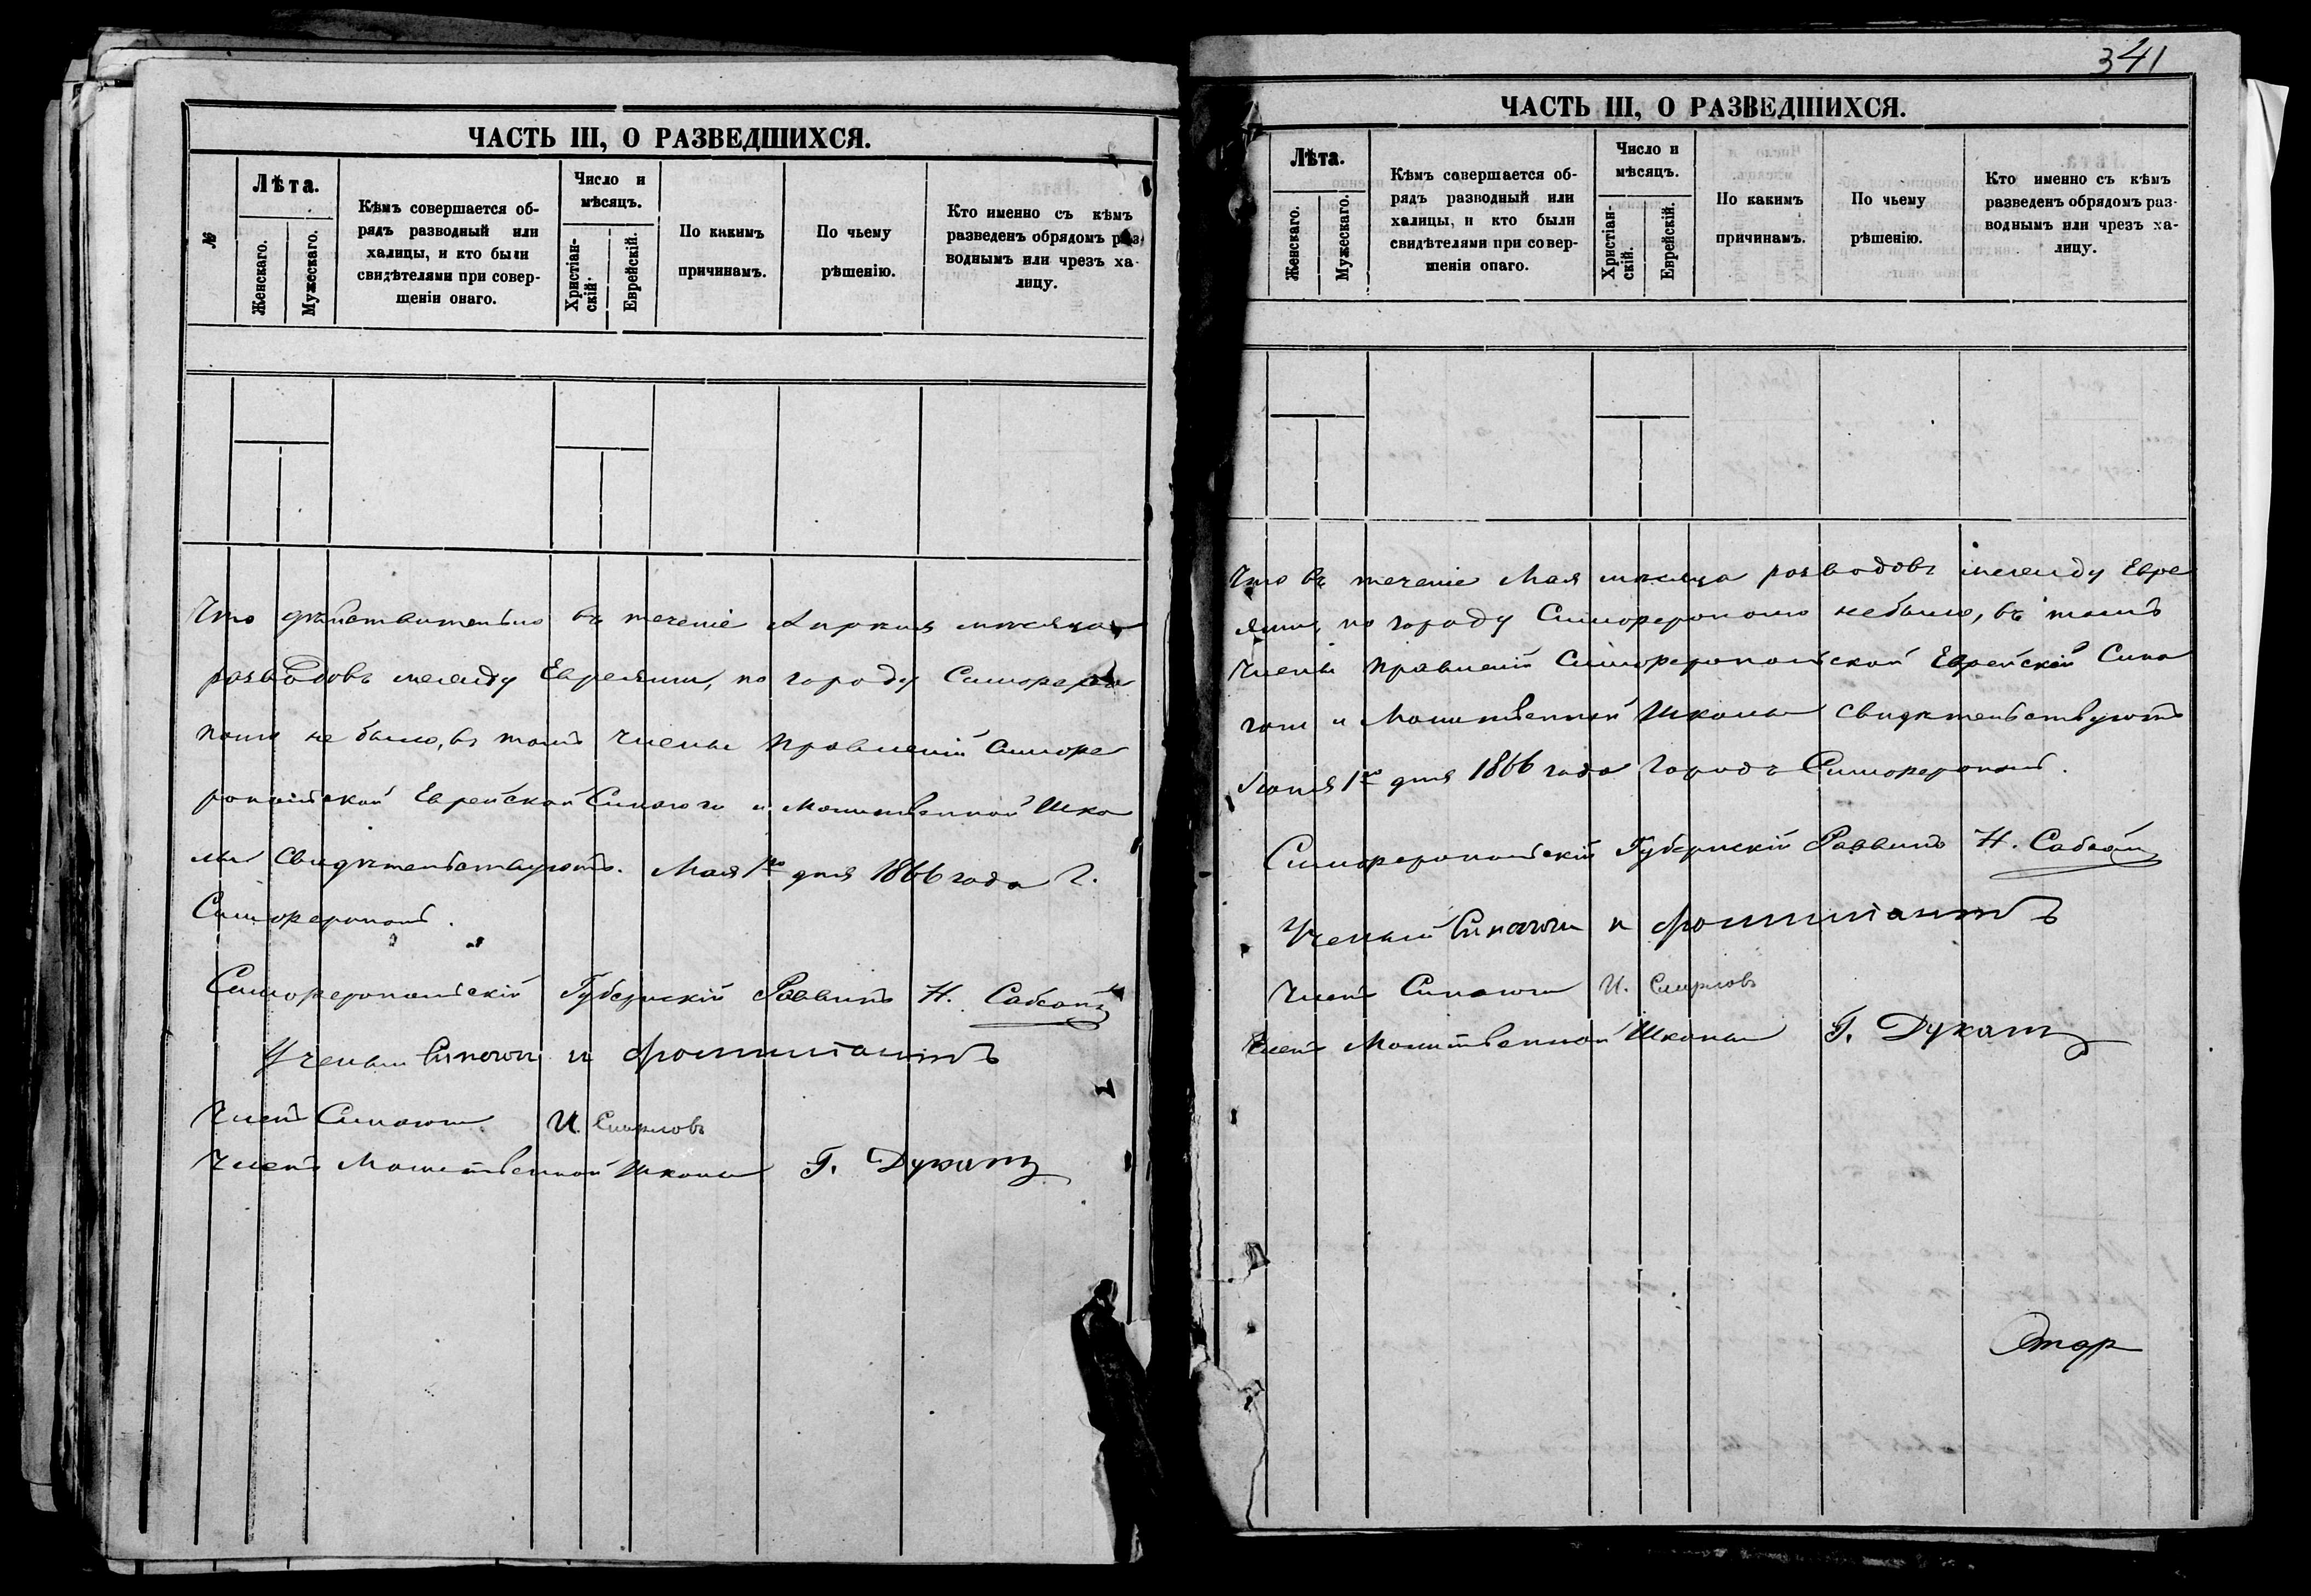 ЧАСТЬ III, О РАЗВЕДШИХСЯ.
№
Лѣта.
Женскаго.
Мужескаго.
Кѣмъ совершается об-
рядъ разводный или
халицы, и кто были
свидѣтелями при совер-
шеніи онаго.
Число и
мѣсяцъ.
Христіан-
скій.
Еврейскій.
По какимъ
причинамъ.
По чьему
рѣшенію.
Кто именно съ кѣмъ
разведенъ обрядомъ раз-
воднымъ или чрезъ ха-
лицу.
Что дѣйствительно въ теченіе Апрѣля мѣсяца
разводовъ между Евреями, по городу Симферо
полю не было, въ томъ члены правленій Симфе
ропольской Еврейской Синагоги и Молитвенной Шко
лы свидѣтельствуютъ. Мая 1го дня 1866 года Г.
Симферополь.
Симферопольскій Губернскій Раввинъ Н.
Ученый Синагоги
Членъ Синагоги И.
Членъ Молитвенной Школы Г. Дукатъ
341
ЧАСТЬ III, О РАЗВЕДШИХСЯ.
Лѣта.
Женскаго.
Мужескаго.
Кѣмъ совершается об-
рядъ разводный или
халицы, и кто были
свидѣтелями при совер-
шеніи онаго.
Число и
мѣсяцъ.
Христіан-
скій.
Еврейскій.
По какимъ
причинамъ.
По чьему
рѣшенію.
Кто именно съ кѣмъ
разведенъ обрядомъ раз-
воднымъ или чрезъ ха-
лицу.
Что въ теченіе Мая мѣсяца разводовъ между Евре
ями, по городу Симферополю не было, въ томъ
члены правленій Симферопольской Еврейской Сина
гоги и Молитвенной Школы свидѣтельствуютъ
Іюня 1го дня 1866 года Городъ Симферополь.
Симферопольскій Губернскій Раввинъ Н.
Ученый Синагоги
Членъ Синагоги И.
Членъ Молитвенной Школы Г. Дукатъ